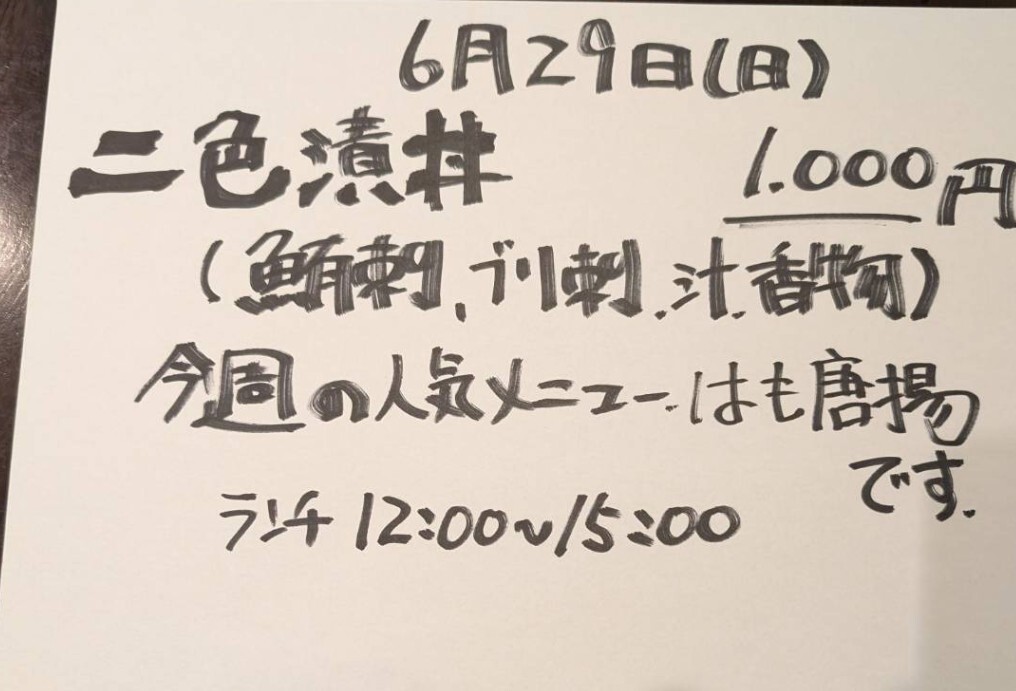 6月29日(日)
二色漬丼 1.000円
(鮪刺、ブリ刺、汁、香物)
今週の人気メニュー、はも唐揚
です。
ランチ 12:00~15:00